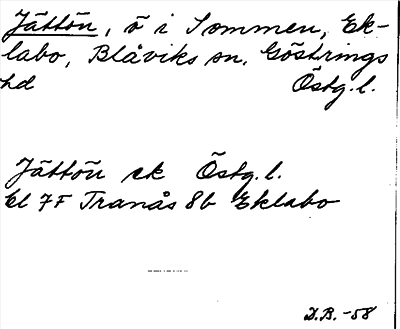 Jättön, ö i Sommen, Ek-
labo, Blåviks sn, Göstrings
hd Östg.l.
Jättön ek Östg.l.
El 7F Tranås 8b Eklabo
D.B. -58